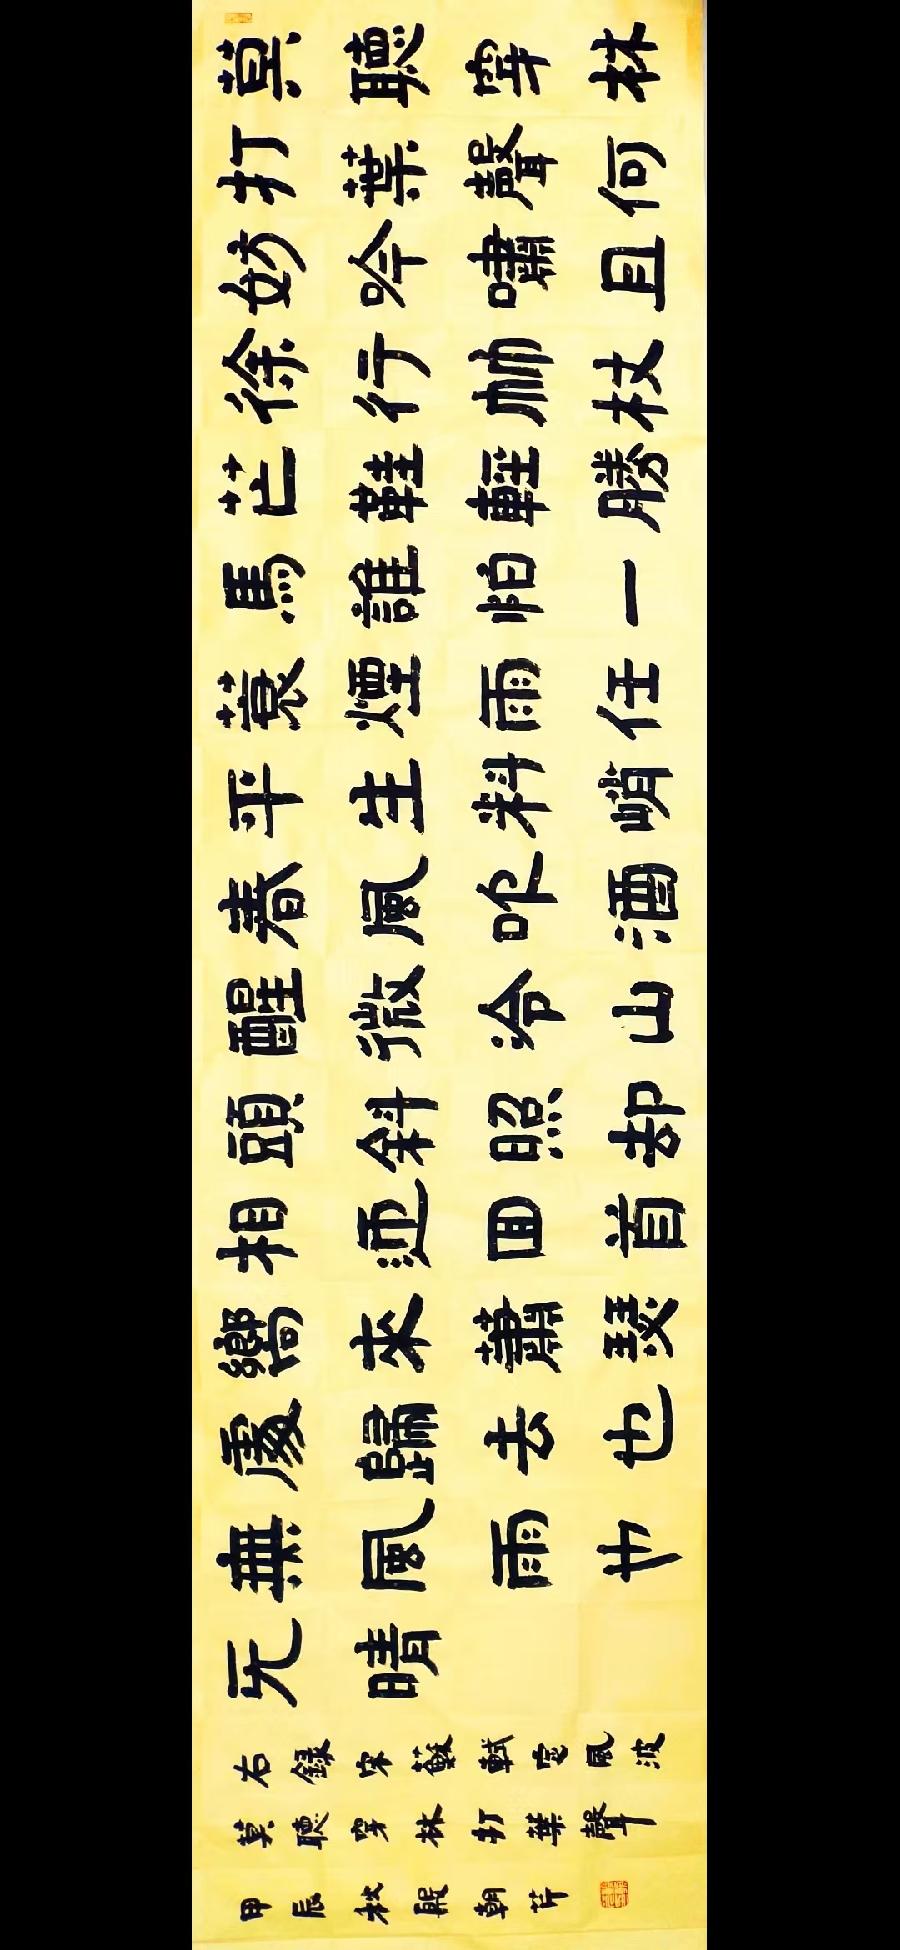 莫聽穿林
打葉聲何
妨吟嘯且
徐行竹杖
芒鞋輕勝
馬誰怕一
蓑煙雨任
平生料峭
春風吹酒
醒微冷山
頭斜照却
相迎回首
嚮來蕭瑟
處歸去也
無風雨也
无晴
右錄宋蘇軾定風波
莫聽穿林打葉聲
甲辰秋殷朝芹